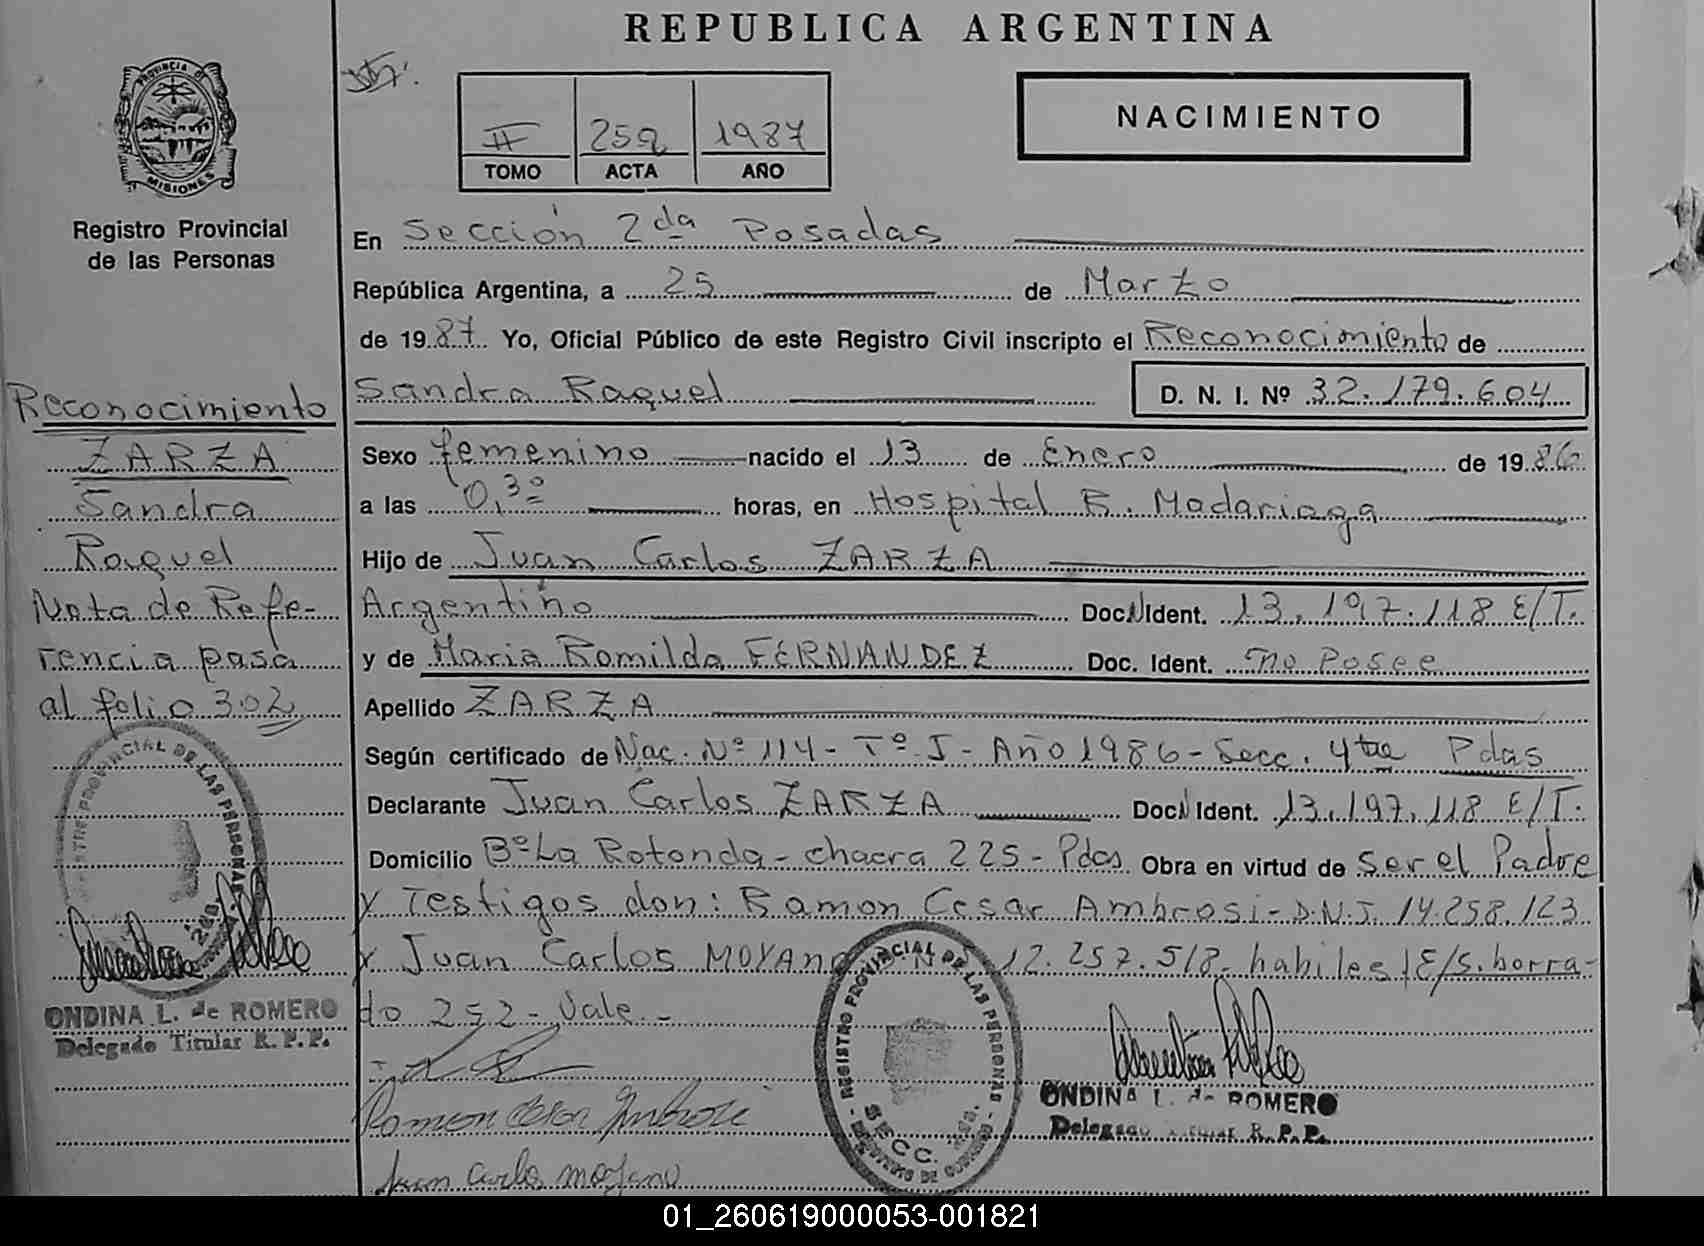 REPUBLICA ARGENTINA
PROVINCIA DE
MISIONES
Registro Provincial
de las Personas
II 252 1987
TOMO ACTA AÑO
NACIMIENTO
En Sección 2da Posadas
República Argentina, a 25 de Marzo
de 1987 Yo, Oficial Público de este Registro Civil inscripto el Reconocimiento de
Sandra Raquel D. N. I. Nº 32.179.604
Sexo femenino nacido el 13 de Enero de 1986
a las 0,30 horas, en Hospital R. Madariaga
Hijo de Juan Carlos ZARZA
Argentino Doc. Ident. 13.197.118 E/T.
y de Maria Romilda FERNANDEZ Doc. Ident. no Posee
Apellido ZARZA
Según certificado de Nac. Nº 114 - Tº I - Año 1986 - Secc. 4ta Pdas
Declarante Juan Carlos ZARZA Doc. Ident. 13.197.118 E/T.
Domicilio Bº La Rotonda - chacra 225 - Pdas Obra en virtud de Ser el Padre
y Testigos don: Ramon Cesar Ambrosi - D.N.I. 14.258.123
y Juan Carlos MOYANO 12.257.518 - habiles | E/s. borra-
do 252 - Vale. -
Ramon Cesar Ambrosi
Juan Carlo moyano
REGISTRO PROVINCIAL DE LAS PERSONAS
SECC. 2da.
ONDINA L. de ROMERO
Delegado Titular R. P. P.
Reconocimiento
ZARZA
Sandra
Raquel
Nota de Refe-
rencia pasa
al folio 302
PROVINCIAL DE LAS PERSONAS
2da.
ONDINA L. de ROMERO
Delegado Titular R. P. P.
01_260619000053-001821